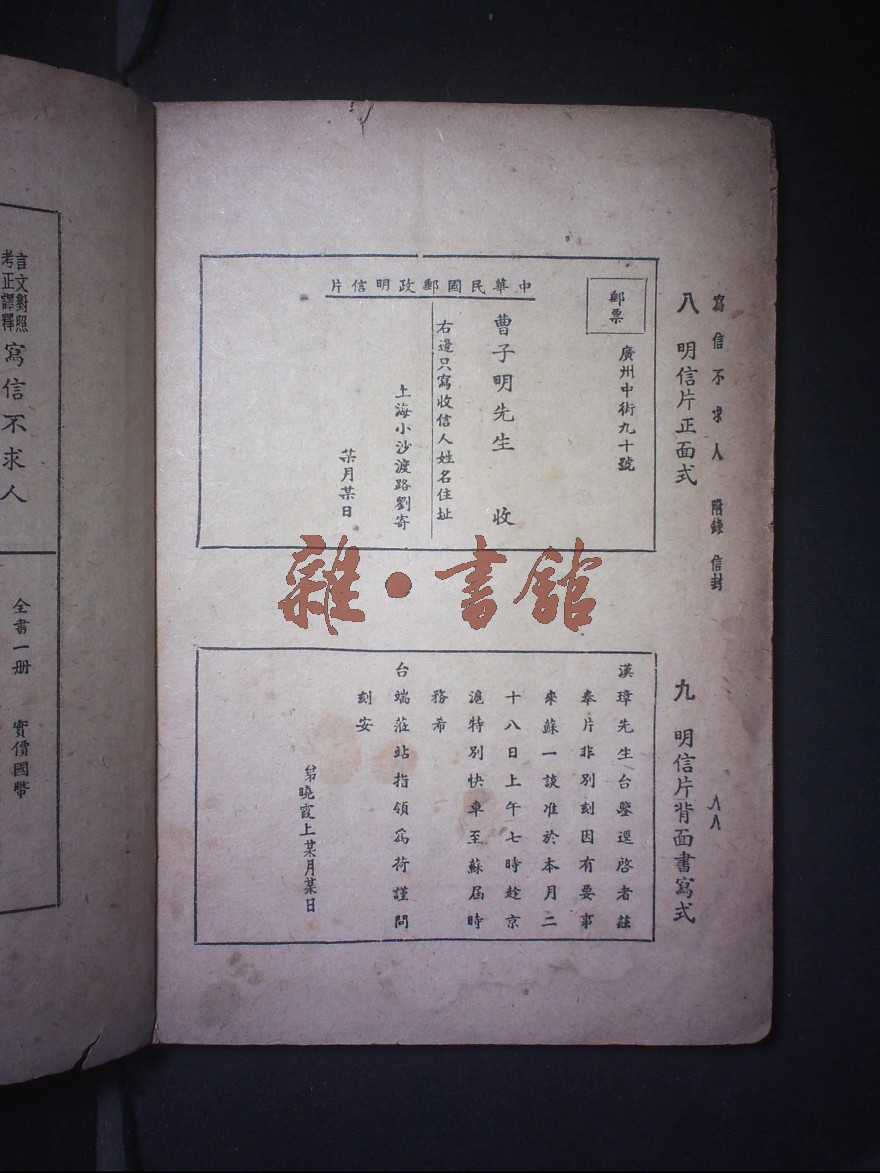 寫信不求人 附錄 信封
八八
八 明信片正面式
郵票
廣州中街九十號
曹子明先生 收
中華民國郵政明信片
右邊只寫收信人姓名住址
上海小沙渡路劉寄
某月某日
九 明信片背面書寫式
漢璋先生台鑒逕啓者茲
奉片非別刻因有要事
來蘇一談准於本月二
十八日上午七時趁京
滬特別快車至蘇屆時
務希
台端蒞站指領爲荷謹問
刻安
弟曉霞上某月某日
雜·書館
言文對照
考正譯釋
寫信不求人
全書一册 實價國幣